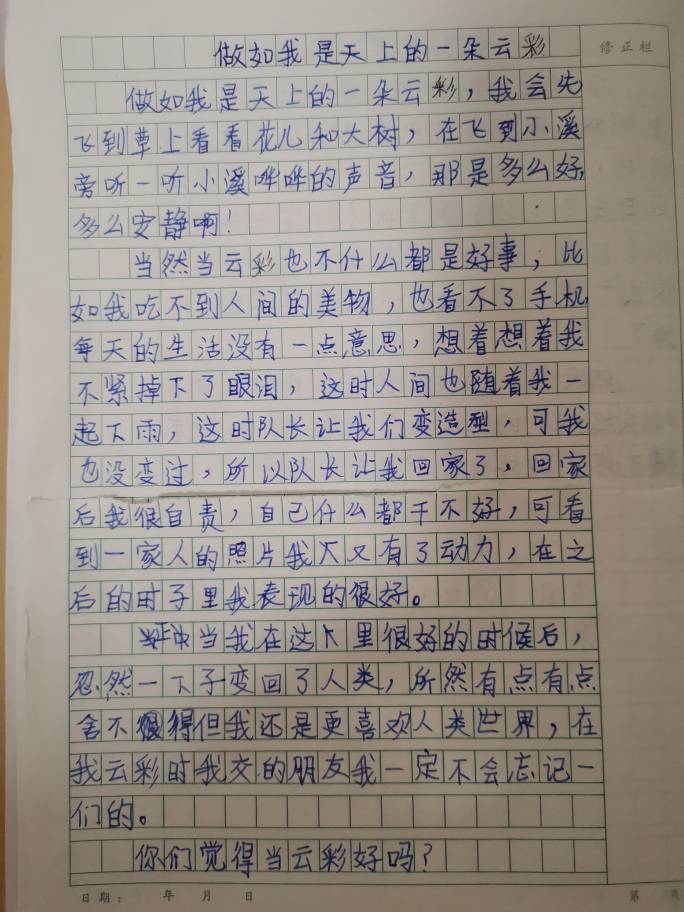 做如我是天上的一朵云彩
修正栏
做如我是天上的一朵云彩，我会先
飞到草上看看花儿和大树，在飞到小溪
旁听一听小溪哗哗的声音，那是多么好，
多么安静啊！
当然当云彩也不什么都是好事，比
如我吃不到人间的美物，也看不了手机，
每天的生活没有一点意思，想着想着我
不紧掉下了眼泪，这时人间也随着我一
起下雨，这时队长让我们变造型，可我
也没变过，所以队长让我回家了，回家
后我很自责，自己什么都干不好，可看
到一家人的照片我又有了动力，在之
后的时子里我表现的很好。
当我在这里很好的时候后，
忽然一下子变回了人类，所然有点有点
舍不得但我还是更喜欢人类世界，在
我云彩时我交的朋友我一定不会忘记
们的。
你们觉得当云彩好吗？
日期： 年 月 日
第 页